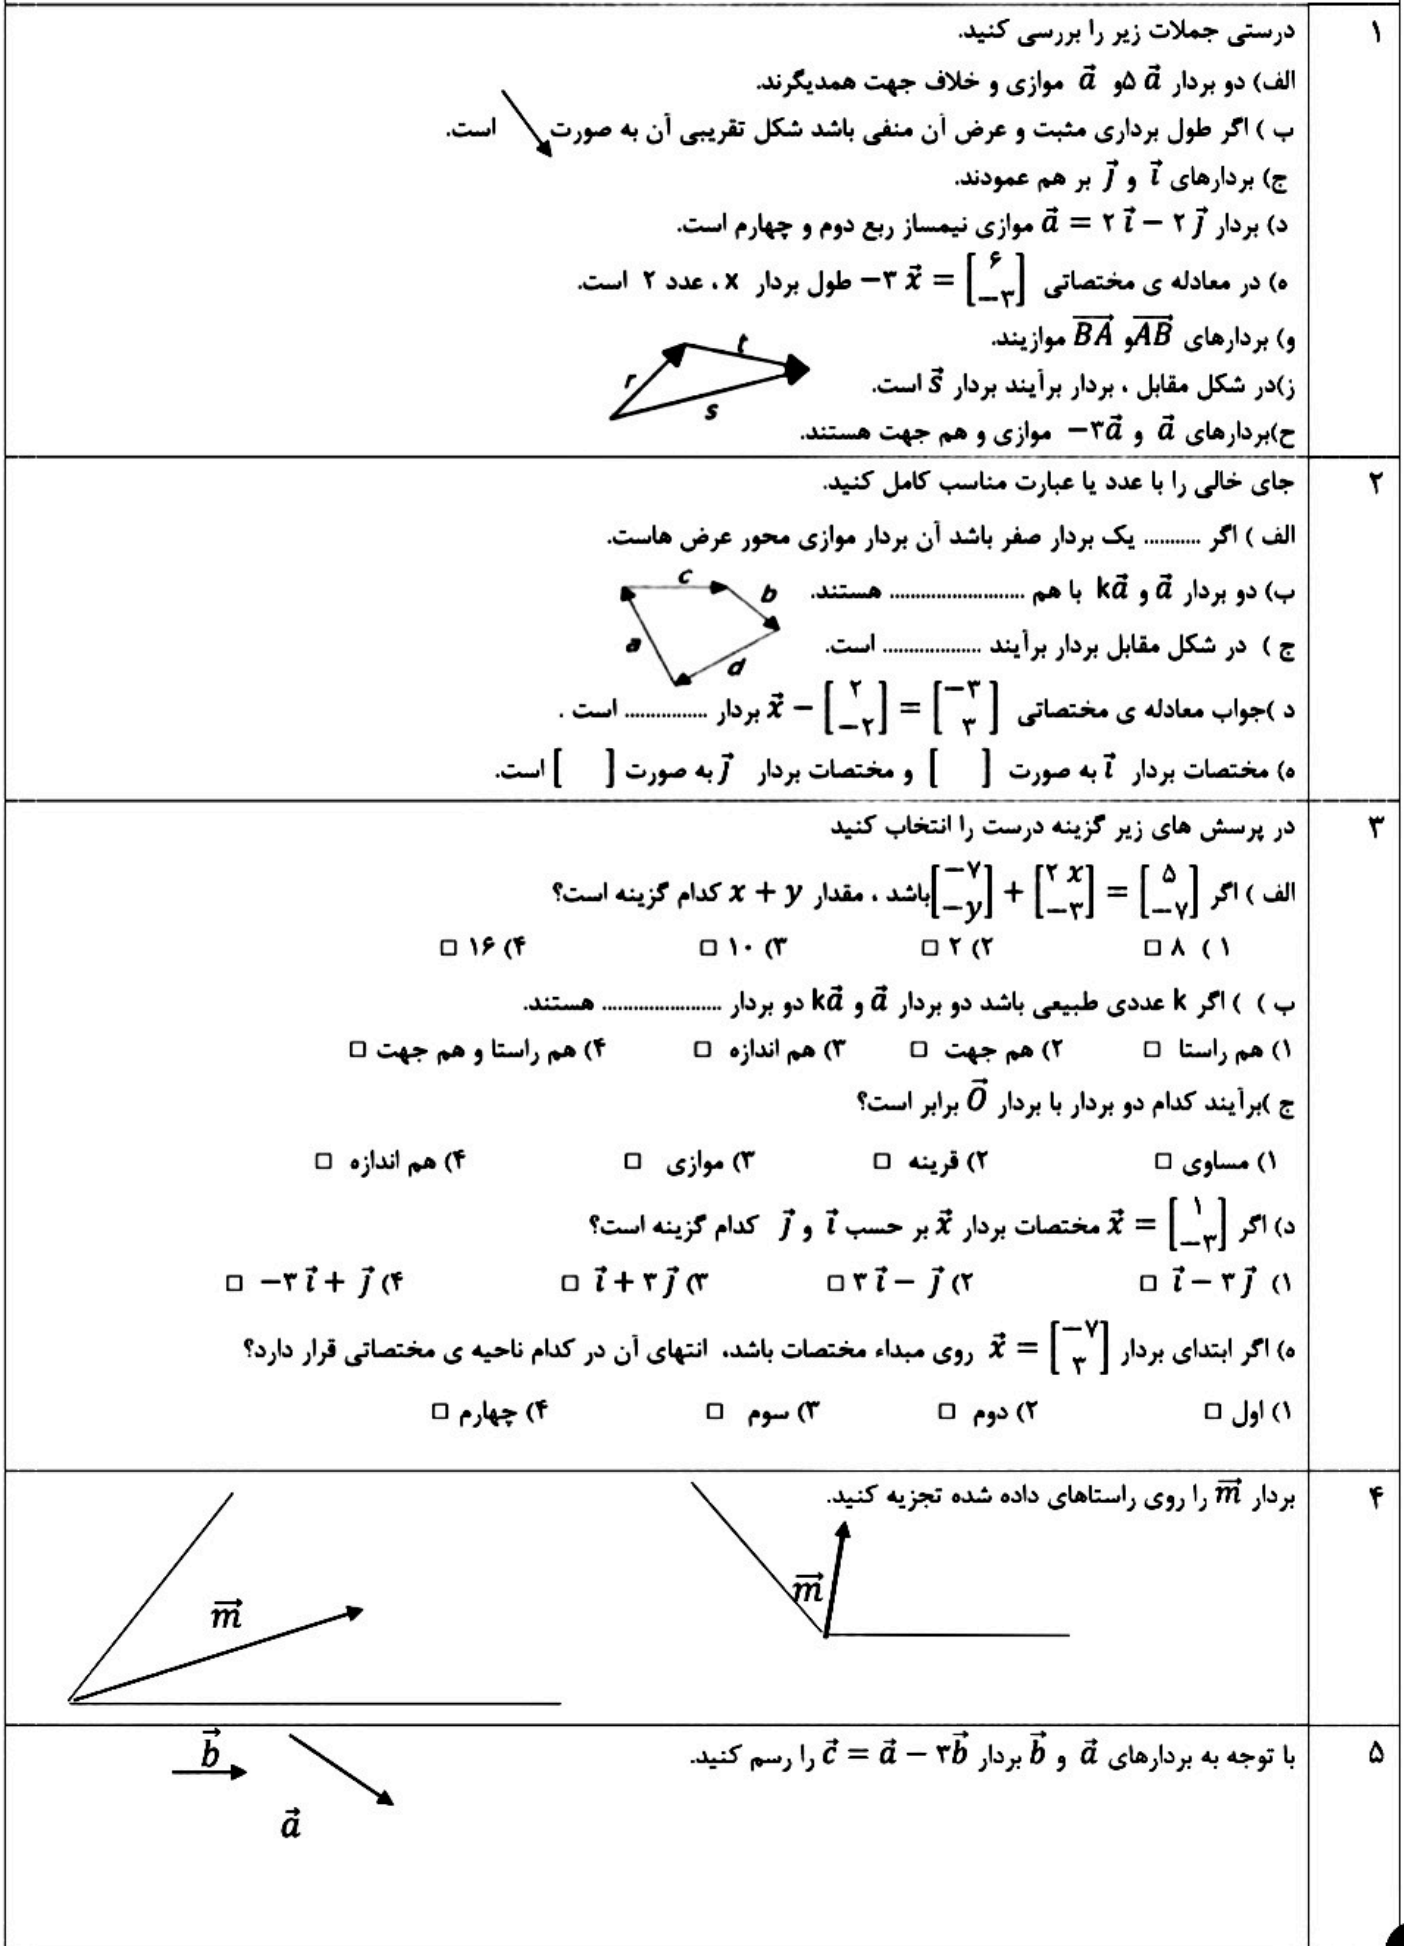 ۱
درستی جملات زیر را بررسی کنید.
الف) دو بردار a⃗ ۵و a⃗ موازی و خلاف جهت همدیگرند.
ب ) اگر طول برداری مثبت و عرض آن منفی باشد شکل تقریبی آن به صورت است.
ج) بردارهای i⃗ و j⃗ بر هم عمودند.
د) بردار a⃗ = ۲ i⃗ − ۲ j⃗ موازی نیمساز ربع دوم و چهارم است.
ه) در معادله ی مختصاتی −۳ x⃗ = [۶ −۳] طول بردار x ، عدد ۲ است.
و) بردارهای AB⃗و BA⃗ موازیند.
ز)در شکل مقابل ، بردار برآیند بردار s⃗ است.
r t s
ح)بردارهای a⃗ و −۳a⃗ موازی و هم جهت هستند.
۲
جای خالی را با عدد یا عبارت مناسب کامل کنید.
الف ) اگر ........... یک بردار صفر باشد آن بردار موازی محور عرض هاست.
ب) دو بردار a⃗ و ka⃗ با هم .......................... هستند.
ج ) در شکل مقابل بردار برآیند ................... است.
c b a d
د )جواب معادله ی مختصاتی x⃗ − [۲ −۲] = [−۳ ۳] بردار ................ است .
ه) مختصات بردار i⃗ به صورت [ ] و مختصات بردار j⃗ به صورت [ ] است.
۳
در پرسش های زیر گزینه درست را انتخاب کنید
الف ) اگر [−۷ −y] + [۲ x −۳] = [۵ −۷] باشد ، مقدار x + y کدام گزینه است؟
۱ ) ۸ □ ۲) ۲ □ ۳) ۱۰ □ ۴) ۱۶ □
ب ) ) اگر k عددی طبیعی باشد دو بردار a⃗ و ka⃗ دو بردار ....................... هستند.
۱) هم راستا □ ۲) هم جهت □ ۳) هم اندازه □ ۴) هم راستا و هم جهت □
ج )برآیند کدام دو بردار با بردار O⃗ برابر است؟
۱) مساوی □ ۲) قرینه □ ۳) موازی □ ۴) هم اندازه □
د) اگر x⃗ = [۱ −۳] مختصات بردار x⃗ بر حسب i⃗ و j⃗ کدام گزینه است؟
۱) i⃗ − ۳ j⃗ □ ۲) ۳ i⃗ − j⃗ □ ۳) i⃗ + ۳ j⃗ □ ۴) −۳ i⃗ + j⃗ □
ه) اگر ابتدای بردار x⃗ = [−۷ ۳] روی مبداء مختصات باشد، انتهای آن در کدام ناحیه ی مختصاتی قرار دارد؟
۱) اول □ ۲) دوم □ ۳) سوم □ ۴) چهارم □
۴
بردار m⃗ را روی راستاهای داده شده تجزیه کنید.
m⃗
m⃗
۵
با توجه به بردارهای a⃗ و b⃗ بردار c⃗ = a⃗ − ۳b⃗ را رسم کنید.
b⃗
a⃗